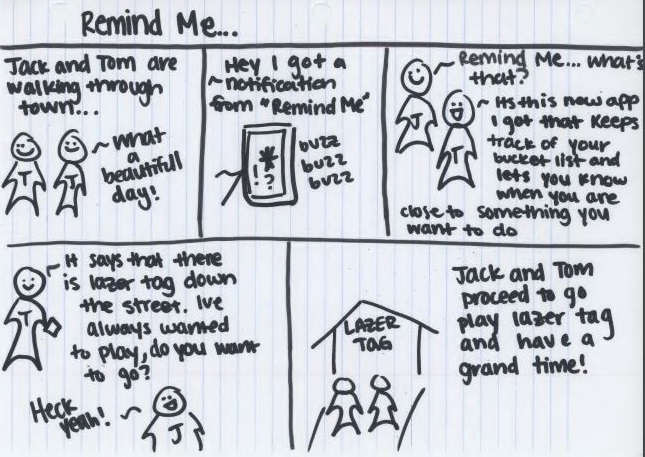 Remind Me...
Jack and Tom are
walking through
town...
What
a
beautifull
day!
T
T
Hey I got a
notification
from "Remind Me"
*
!?
buzz
buzz
buzz
Remind Me... what's
that?
Its this new app
I got that keeps
track of your
bucket list and
lets you know
when you are
close to something you
want to do
J
T
It says that there
is lazer tag down
the street. Ive
always wanted
to play, do you want
to go?
T
Heck
yeah!
J
LAZER
TAG
Jack and Tom
proceed to go
play lazer tag
and have a
grand time!